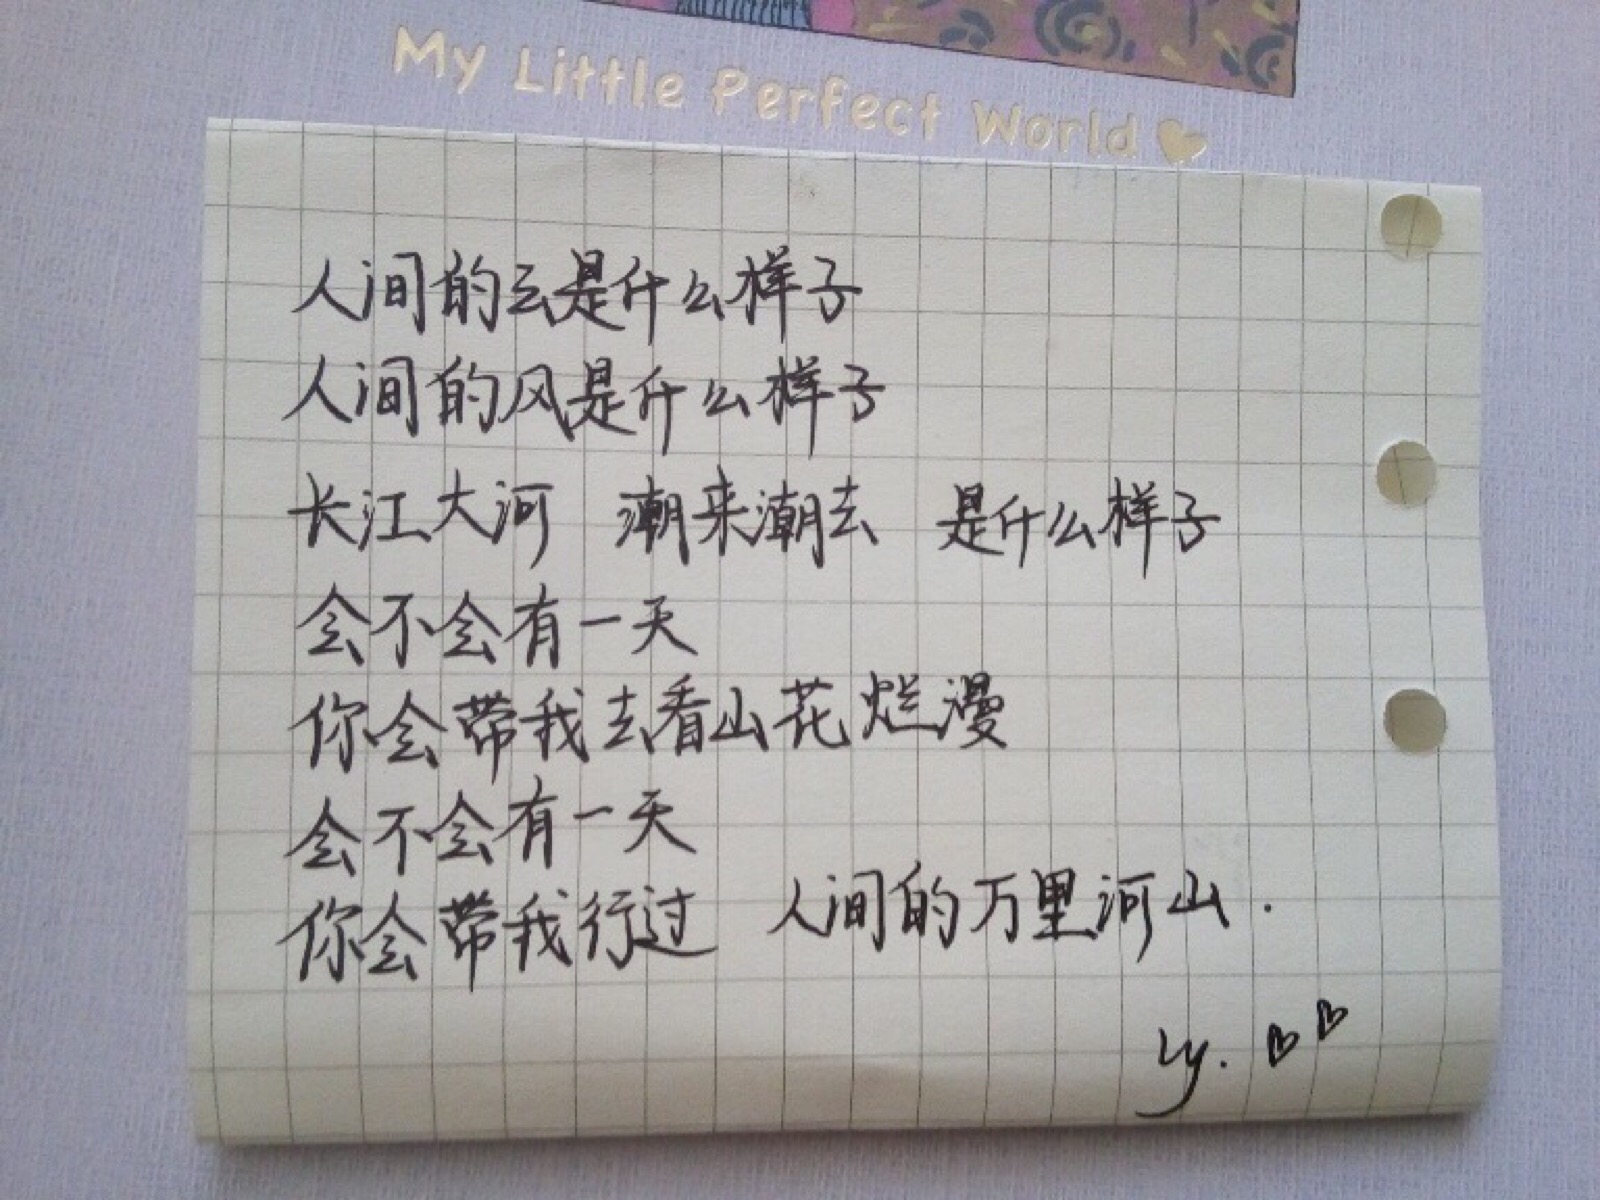 My Little Perfect World
人间的云是什么样子
人间的风是什么样子
长江大河 潮来潮去 是什么样子
会不会有一天
你会带我去看山花烂漫
会不会有一天
你会带我行过 人间的万里河山.
Ly.